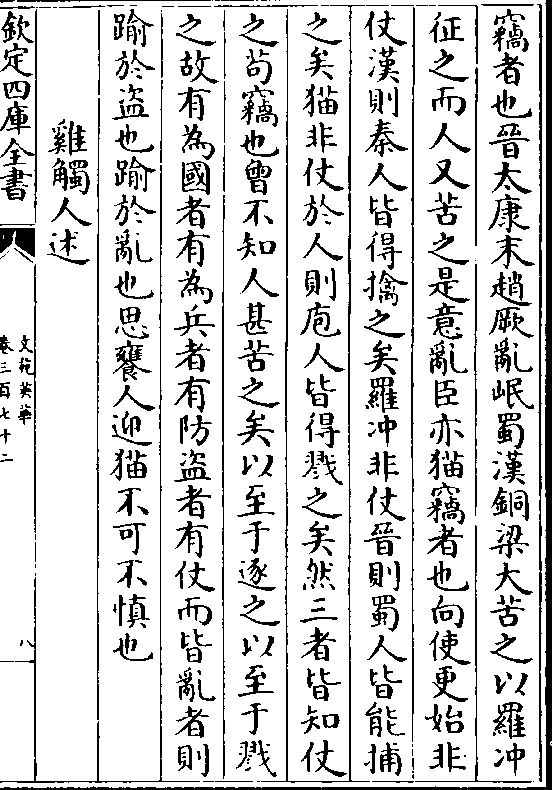 竊者也晉太康末趙厥亂岷蜀漢銅梁大苦之以羅冲
征之而人又苦之是意亂臣亦猫竊者也向使更始非
仗漢則秦人皆得擒之矣羅冲非仗晉則蜀人皆能捕
之矣猫非仗於人則庖人皆得戮之矣然三者皆知仗
之茍竊也曾不知人甚苦之矣以至于逐之以至于戮
之故有為國者有為兵者有防盜者有仗而皆亂者則
踰於盜也踰於亂也思饔人迎猫不可不慎也
雞觸人述
欽定四庫全書
文苑英華
卷三百七十二
八